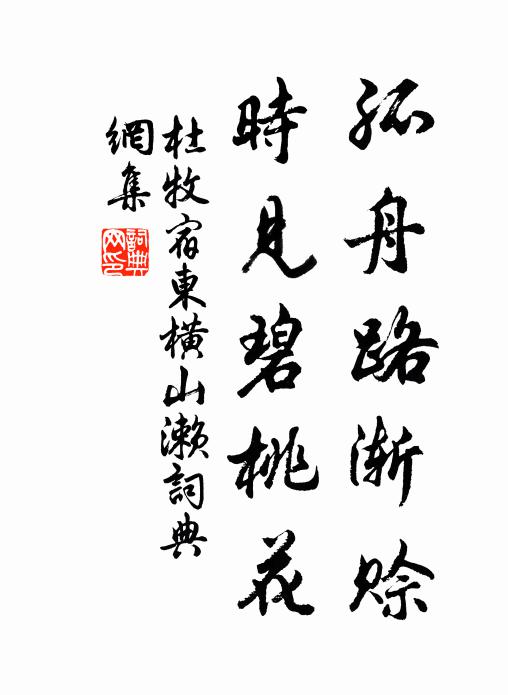 孤舟路漸賒
時見碧桃花
杜牧宿東橫山瀨詞典
網集
詞典網印